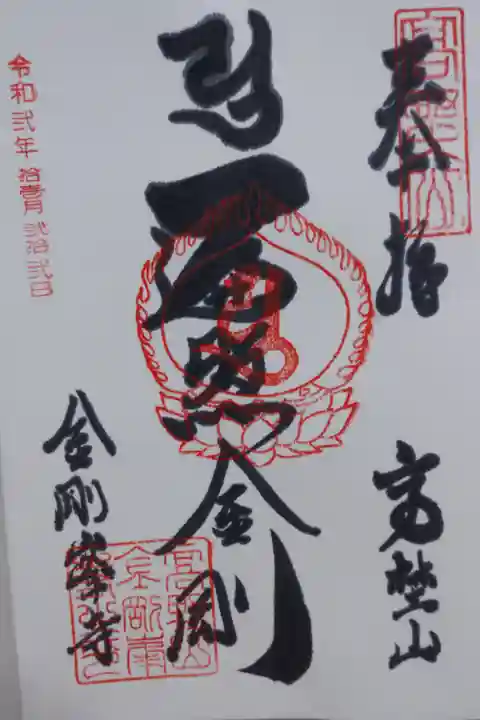 奉拝
高野山
遍照金剛
金剛峯寺
令和弐年 拾壱月 弐拾弐日
高野山